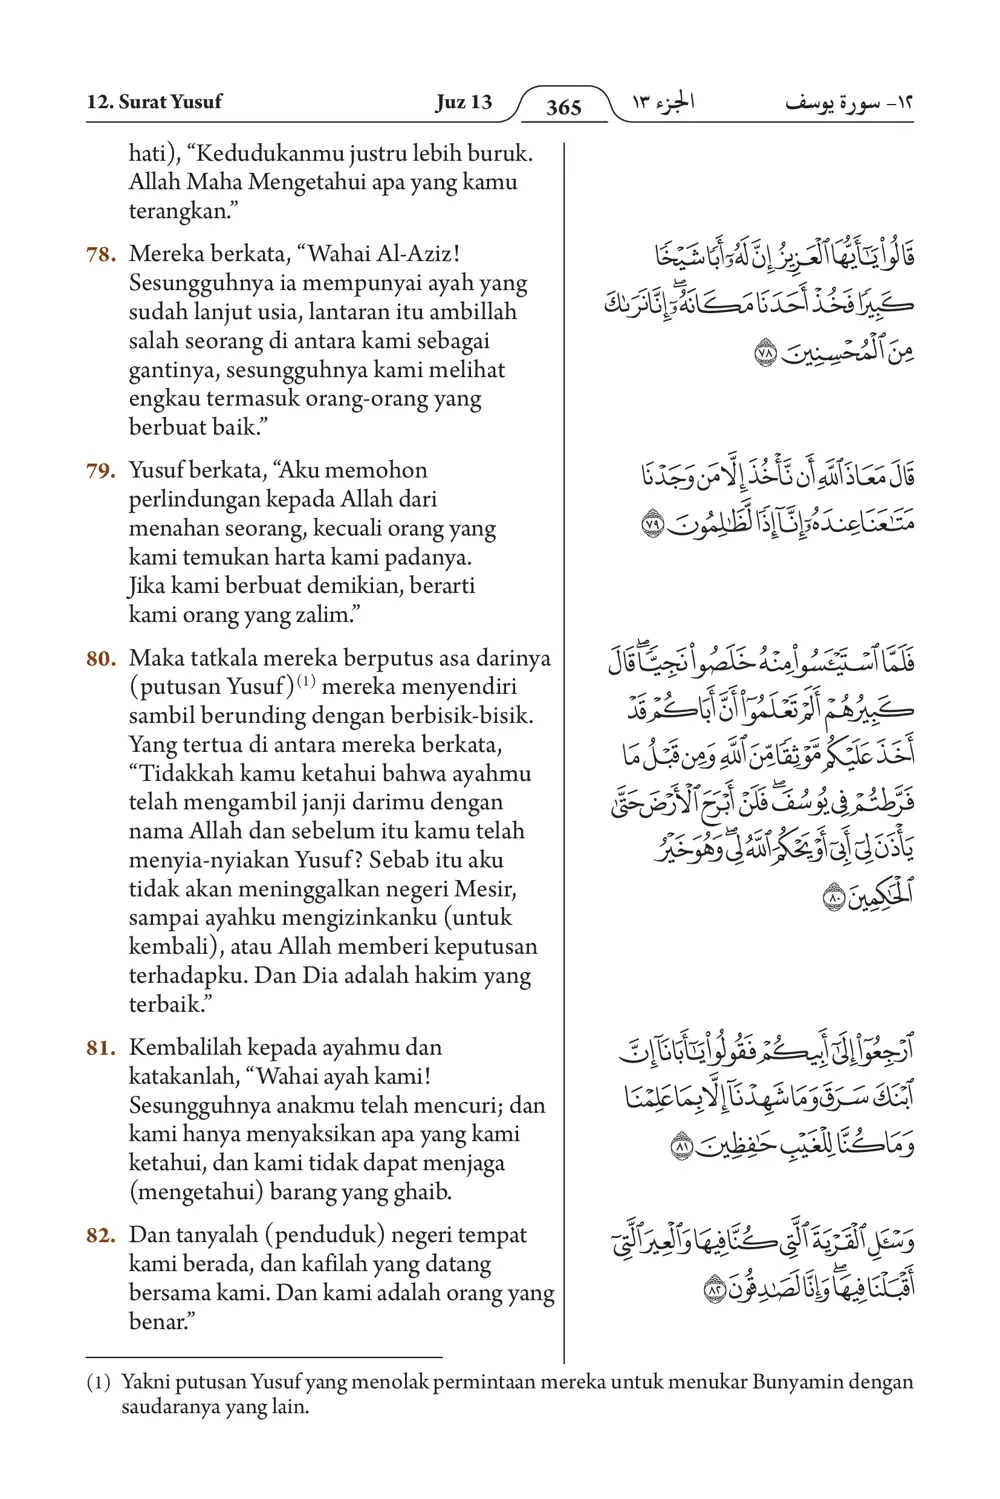 12. Surat Yusuf Juz 13 365 الجزء ١٣ ١٢- سورة يوسف
hati), “Kedudukanmu justru lebih buruk.
Allah Maha Mengetahui apa yang kamu
terangkan.”
78. Mereka berkata, “Wahai Al-Aziz!
Sesungguhnya ia mempunyai ayah yang
sudah lanjut usia, lantaran itu ambillah
salah seorang di antara kami sebagai
gantinya, sesungguhnya kami melihat
engkau termasuk orang-orang yang
berbuat baik.”
قَالُوا۟ يَـٰٓأَيُّهَا ٱلْعَزِيزُ إِنَّ لَهُۥٓ أَبًا شَيْخًا
كَبِيرًا فَخُذْ أَحَدَنَا مَكَانَهُۥٓ ۖ إِنَّا نَرَىٰكَ
مِنَ ٱلْمُحْسِنِينَ ٧٨
79. Yusuf berkata, “Aku memohon
perlindungan kepada Allah dari
menahan seorang, kecuali orang yang
kami temukan harta kami padanya.
Jika kami berbuat demikian, berarti
kami orang yang zalim.”
قَالَ مَعَاذَ ٱللَّهِ أَن نَّأْخُذَ إِلَّا مَن وَجَدْنَا
مَتَـٰعَنَا عِندَهُۥٓ إِنَّآ إِذًا لَّظَـٰلِمُونَ ٧٩
80. Maka tatkala mereka berputus asa darinya
(putusan Yusuf)(1) mereka menyendiri
sambil berunding dengan berbisik-bisik.
Yang tertua di antara mereka berkata,
“Tidakkah kamu ketahui bahwa ayahmu
telah mengambil janji darimu dengan
nama Allah dan sebelum itu kamu telah
menyia-nyiakan Yusuf? Sebab itu aku
tidak akan meninggalkan negeri Mesir,
sampai ayahku mengizinkanku (untuk
kembali), atau Allah memberi keputusan
terhadapku. Dan Dia adalah hakim yang
terbaik.”
فَلَمَّا ٱسْتَيْـَٔسُوا۟ مِنْهُ خَلَصُوا۟ نَجِيًّا ۖ قَالَ
كَبِيرُهُمْ أَلَمْ تَعْلَمُوٓا۟ أَنَّ أَبَاكُمْ قَدْ
أَخَذَ عَلَيْكُم مَّوْثِقًا مِّنَ ٱللَّهِ وَمِن قَبْلُ مَا
فَرَّطتُمْ فِى يُوسُفَ ۖ فَلَنْ أَبْرَحَ ٱلْأَرْضَ حَتَّىٰ
يَأْذَنَ لِىٓ أَبِىٓ أَوْ يَحْكُمَ ٱللَّهُ لِى ۖ وَهُوَ خَيْرُ
ٱلْحَـٰكِمِينَ ٨٠
81. Kembalilah kepada ayahmu dan
katakanlah, “Wahai ayah kami!
Sesungguhnya anakmu telah mencuri; dan
kami hanya menyaksikan apa yang kami
ketahui, dan kami tidak dapat menjaga
(mengetahui) barang yang ghaib.
ٱرْجِعُوٓا۟ إِلَىٰٓ أَبِيكُمْ فَقُولُوا۟ يَـٰٓأَبَانَآ إِنَّ
ٱبْنَكَ سَرَقَ وَمَا شَهِدْنَآ إِلَّا بِمَا عَلِمْنَا
وَمَا كُنَّا لِلْغَيْبِ حَـٰفِظِينَ ٨١
82. Dan tanyalah (penduduk) negeri tempat
kami berada, dan kafilah yang datang
bersama kami. Dan kami adalah orang yang
benar.”
وَسْـَٔلِ ٱلْقَرْيَةَ ٱلَّتِى كُنَّا فِيهَا وَٱلْعِيرَ ٱلَّتِىٓ
أَقْبَلْنَا فِيهَا ۖ وَإِنَّا لَصَـٰدِقُونَ ٨٢
(1) Yakni putusan Yusuf yang menolak permintaan mereka untuk menukar Bunyamin dengan
saudaranya yang lain.